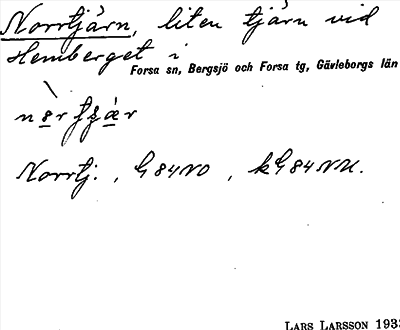 Norrtjärn, liten tjärn vid
Hemberget i
Forsa sn, Bergsjö och Forsa tg, Gävleborgs län
Norrtj., G84NO, kG84NU.
LARS LARSSON 193